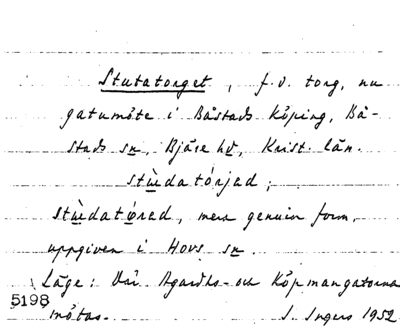 Stutatorget, f.d. torg, nu
gatumöte i Båstads köping, Bå-
stads sn, Bjäre hd, Krist. län.
stùdatórjad;
stùdatòrad, mera genuin form,
uppgiven i Hovs sn.
Läge: Där Agardhs- och Köpmangatorna
5198
mötas. I. Ingers 1952